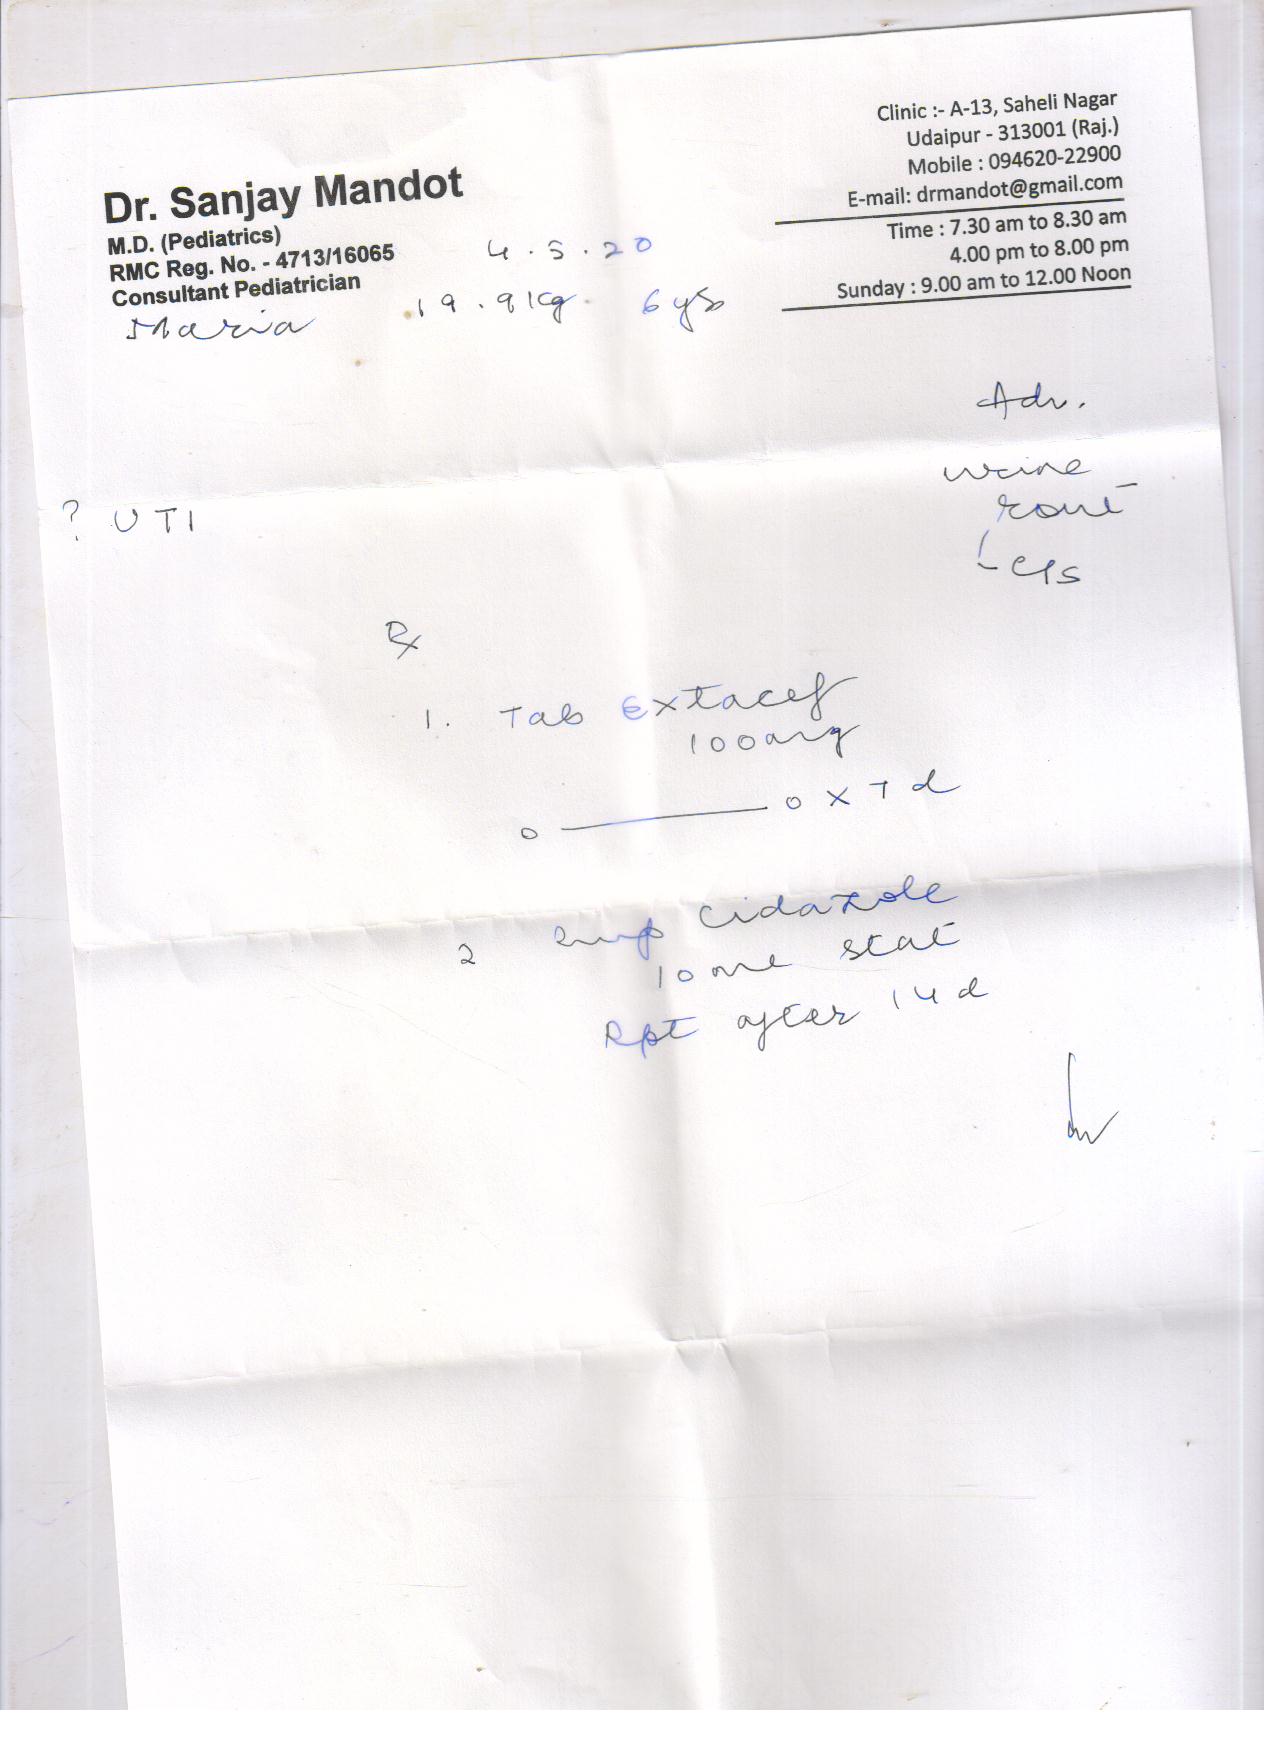 Dr. Sanjay Mandot
M.D. (Pediatrics)
RMC Reg. No. - 4713/16065
Consultant Pediatrician
Clinic :- A-13, Saheli Nagar
Udaipur - 313001 (Raj.)
Mobile : 094620-22900
E-mail: drmandot@gmail.com
Time : 7.30 am to 8.30 am
4.00 pm to 8.00 pm
Sunday : 9.00 am to 12.00 Noon
4.5.20
Maria 19.9 kg 6 ys
Adv.
urine
rout
c/s
? UTI
Rx
1. Tab Extacef
100 mg
0 — 0 x 7 d
2 Susp Cidazole
10 ml stat
Rpt after 14 d